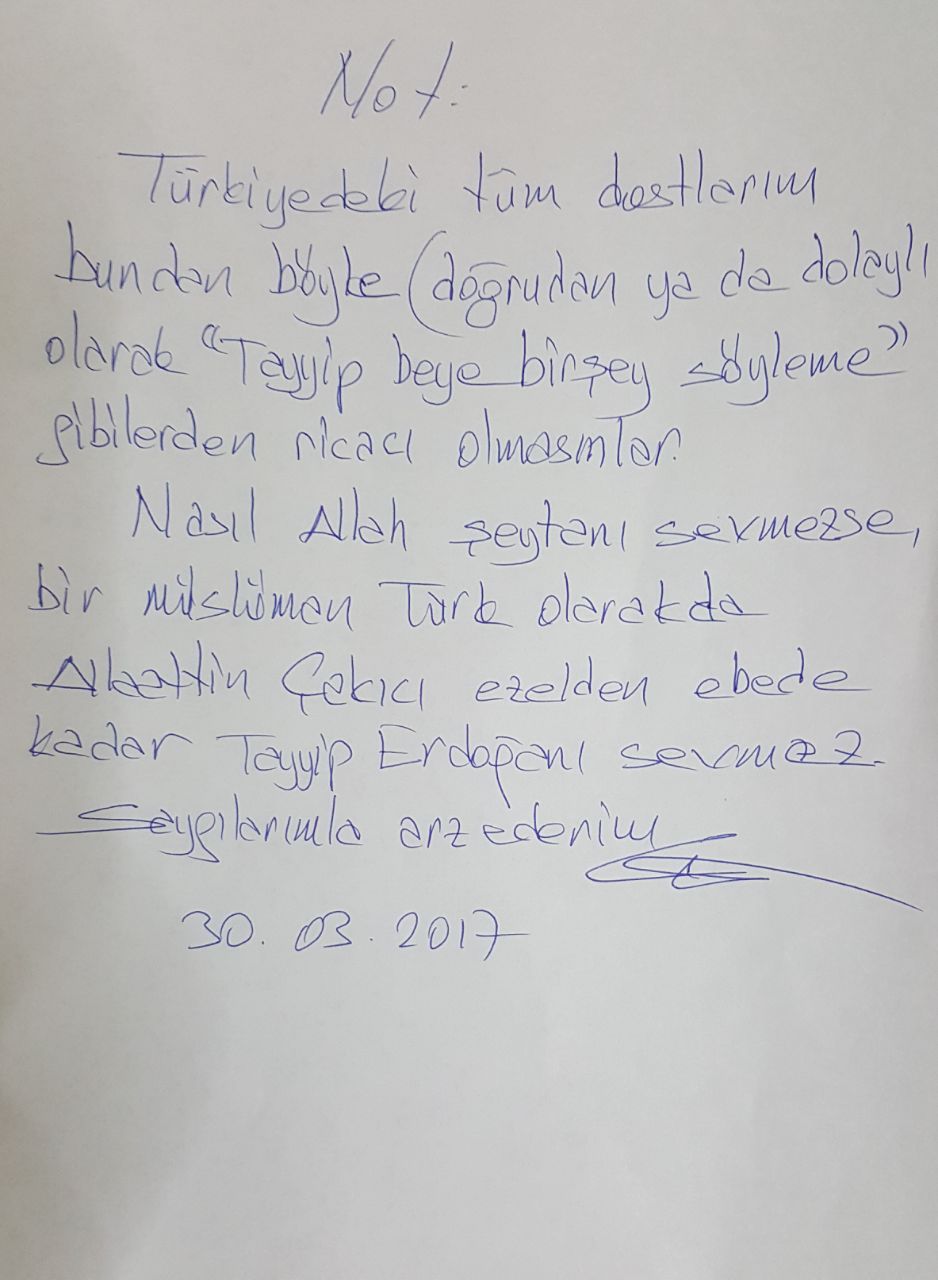 Not:
Türkiyedeki tüm dostlarım
bundan böyle (doğrudan ya da dolaylı
olarak "Tayyip beye birşey söyleme"
gibilerden ricacı olmasınlar.
Nasıl Allah şeytanı sevmezse,
bir müslüman Türk olarakda
Alaettin Çakıcı ezelden ebede
kadar Tayyip Erdoğanı sevmez.
Saygılarımla arzederim
30.03.2017